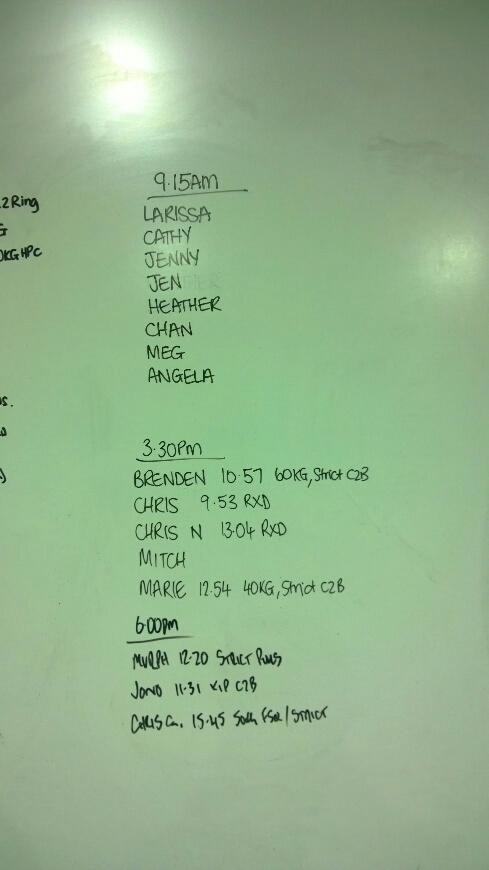 2 Ring
G
KG HPC
9.15AM
LARISSA
CATHY
JENNY
JEN
HEATHER
CHAN
MEG
ANGELA
3.30Pm
BRENDEN 10.57 60KG, Strict C2B
CHRIS 9.53 RXD
CHRIS N 13.04 RXD
MITCH
MARIE 12.54 40KG, Strict C2B
6.00pm
MURPH 12.20 STRICT Pulls
JONO 11.31 KIP C2B
CHRIS 15.45 STRICT